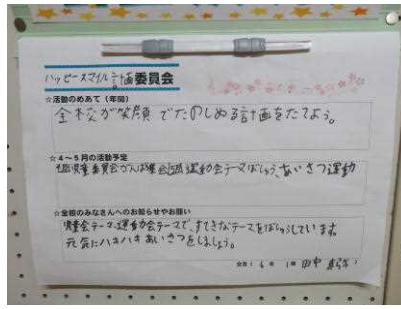 ハッピースマイル計画委員会
☆活動のめあて（年間）
全校が笑顔でたのしめる計画をたてよう。
☆4～5月の活動予定
児童委員会がんば集会 運動会テーマぼしゅう、あいさつ運動
☆全校のみなさんへのお知らせやお願い
児童会テーマ、運動会テーマで、すてきなテーマをぼしゅうしています。
元気にハキハキあいさつをしましょう。
6年1組 田中